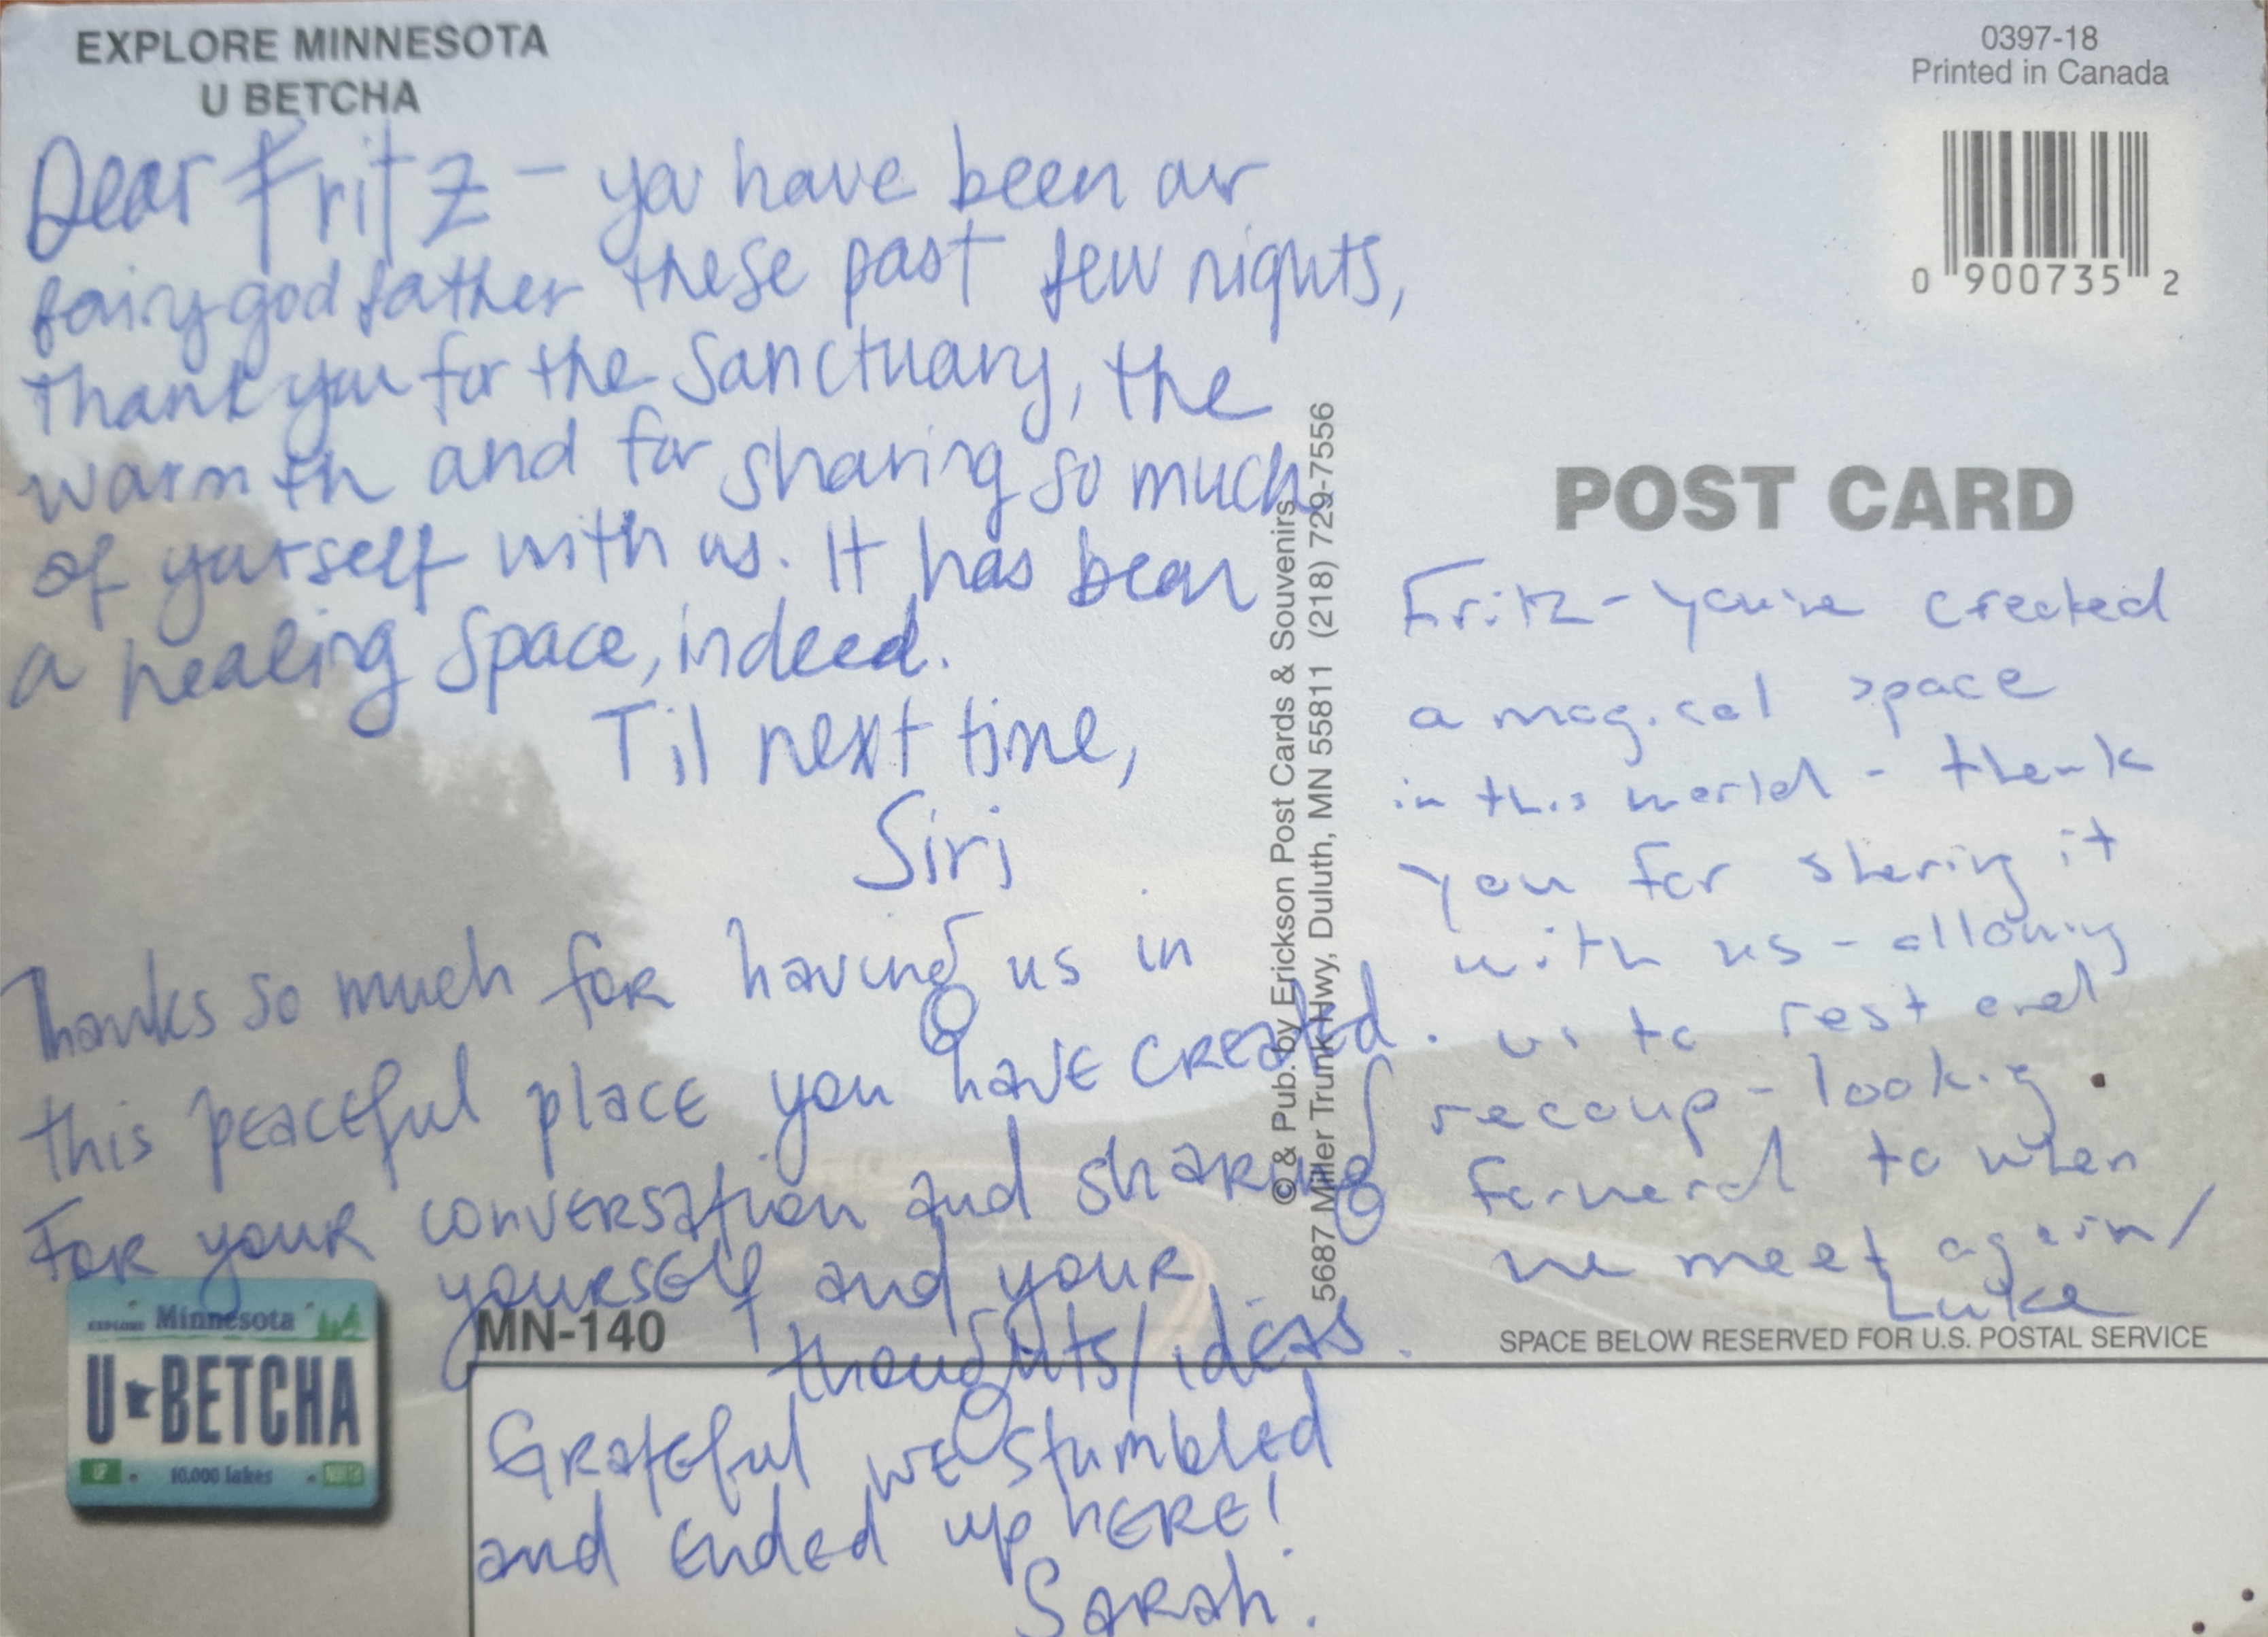 EXPLORE MINNESOTA
U BETCHA
Dear Fritz – you have been our
fairy god father these past few nights,
Thank you for the Sanctuary, the
warmth and for sharing so much
of yourself with us. It has been
a healing space, indeed.
Til next time,
Siri
Thanks so much for having us in
this peaceful place you have created.
For your conversation and sharing
yourself and your
thoughts/ideas.
Grateful we stumbled
and ended up here!
Sarah.
MN-140
EXPLORE Minnesota
U BETCHA
UP
10,000 lakes
NORTH
© & Pub. by Erickson Post Cards & Souvenirs
5687 Miller Trunk Hwy, Duluth, MN 55811 (218) 729-7556
0397-18
Printed in Canada
0 900735 2
POST CARD
Fritz – you've created
a magical space
in this world – thank
you for sharing it
with us – allowing
us to rest and
recoup – looking
forward to when
we meet again/
Luke
SPACE BELOW RESERVED FOR U.S. POSTAL SERVICE